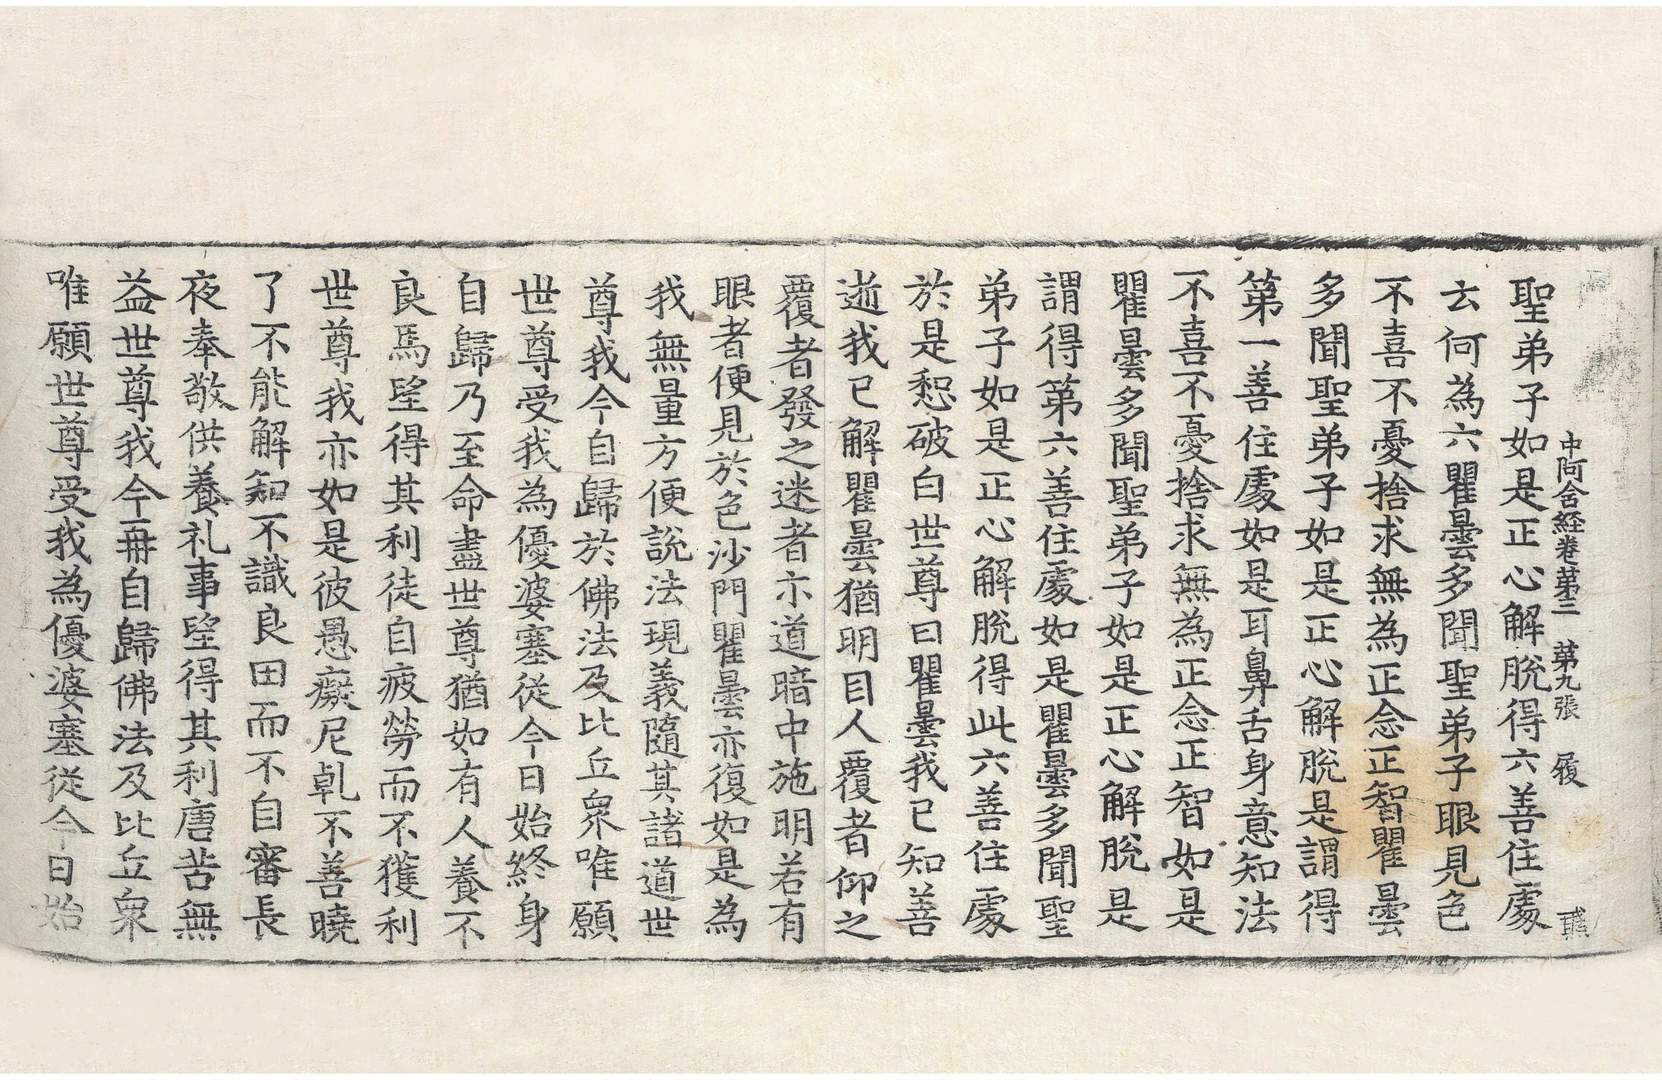 中阿含経卷第三　第九張　履
聖弟子如是正心解脫得六善住處
云何為六瞿曇多聞聖弟子眼見色
不喜不憂捨求無為正念正智瞿曇
多聞聖弟子如是正心解脫是謂得
第一善住處如是耳鼻舌身意知法
不喜不憂捨求無為正念正智如是
瞿曇多聞聖弟子如是正心解脫是
謂得第六善住處如是瞿曇多聞聖
弟子如是正心解脫得此六善住處
於是惒破白世尊曰瞿曇我已知善
逝我已解瞿曇猶明目人覆者仰之
覆者發之迷者示道暗中施明若有
眼者便見於色沙門瞿曇亦復如是為
我無量方便說法現義隨其諸道世
尊我今自歸於佛法及比丘衆唯願
世尊受我為優婆塞從今日始終身
自歸乃至命盡世尊猶如有人養不
良馬望得其利徒自疲勞而不獲利
世尊我亦如是彼愚癡尼乹不善曉
了不能解知不識良田而不自審長
夜奉敬供養礼事望得其利唐苦無
益世尊我今再自歸佛法及比丘衆
唯願世尊受我為優婆塞從今日始